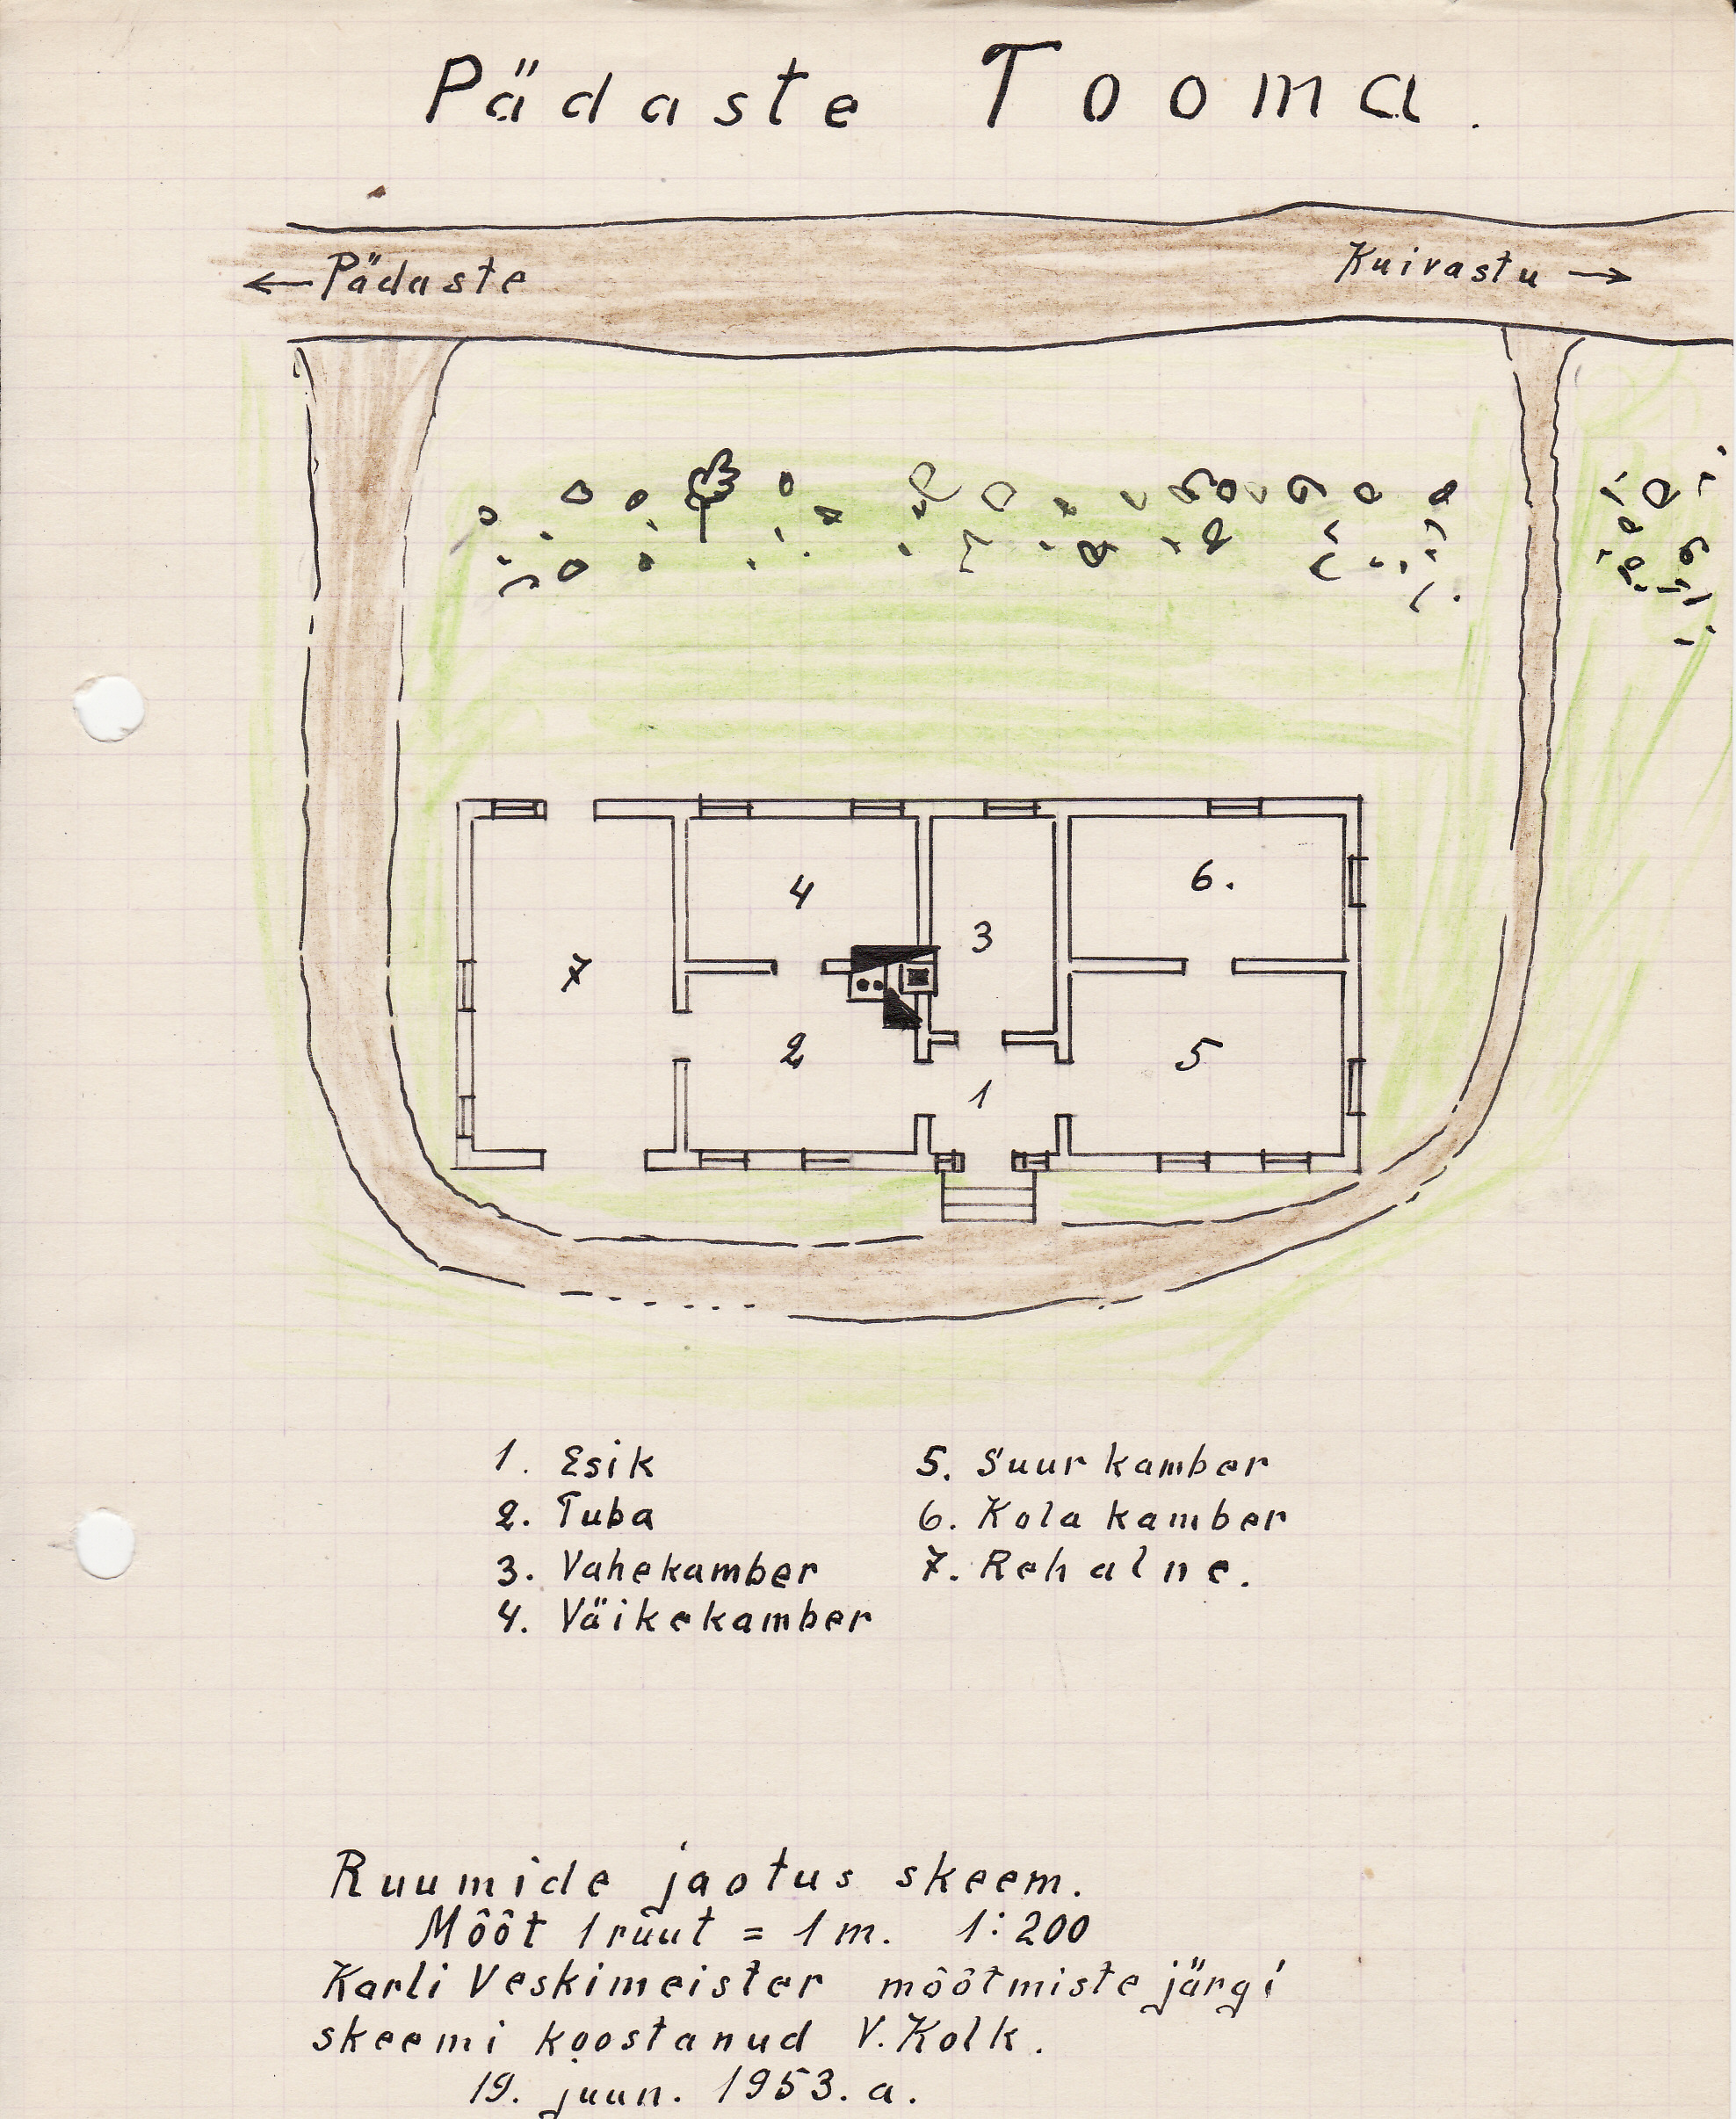 Pädaste Tooma.
← Pädaste
Kuivastu →
4
6.
3
7
2
5
1
1. Esik
2. Tuba
3. Vahekamber
4. Väikekamber
5. Suur kamber
6. Kola kamber
7. Rehalne.
Ruumide jaotus skeem.
Môôt 1 rüut = 1 m. 1:200
Karli Veskimeister môôtmiste järgi
skeemi koostanud V. Kolk.
19. juun. 1953. a.